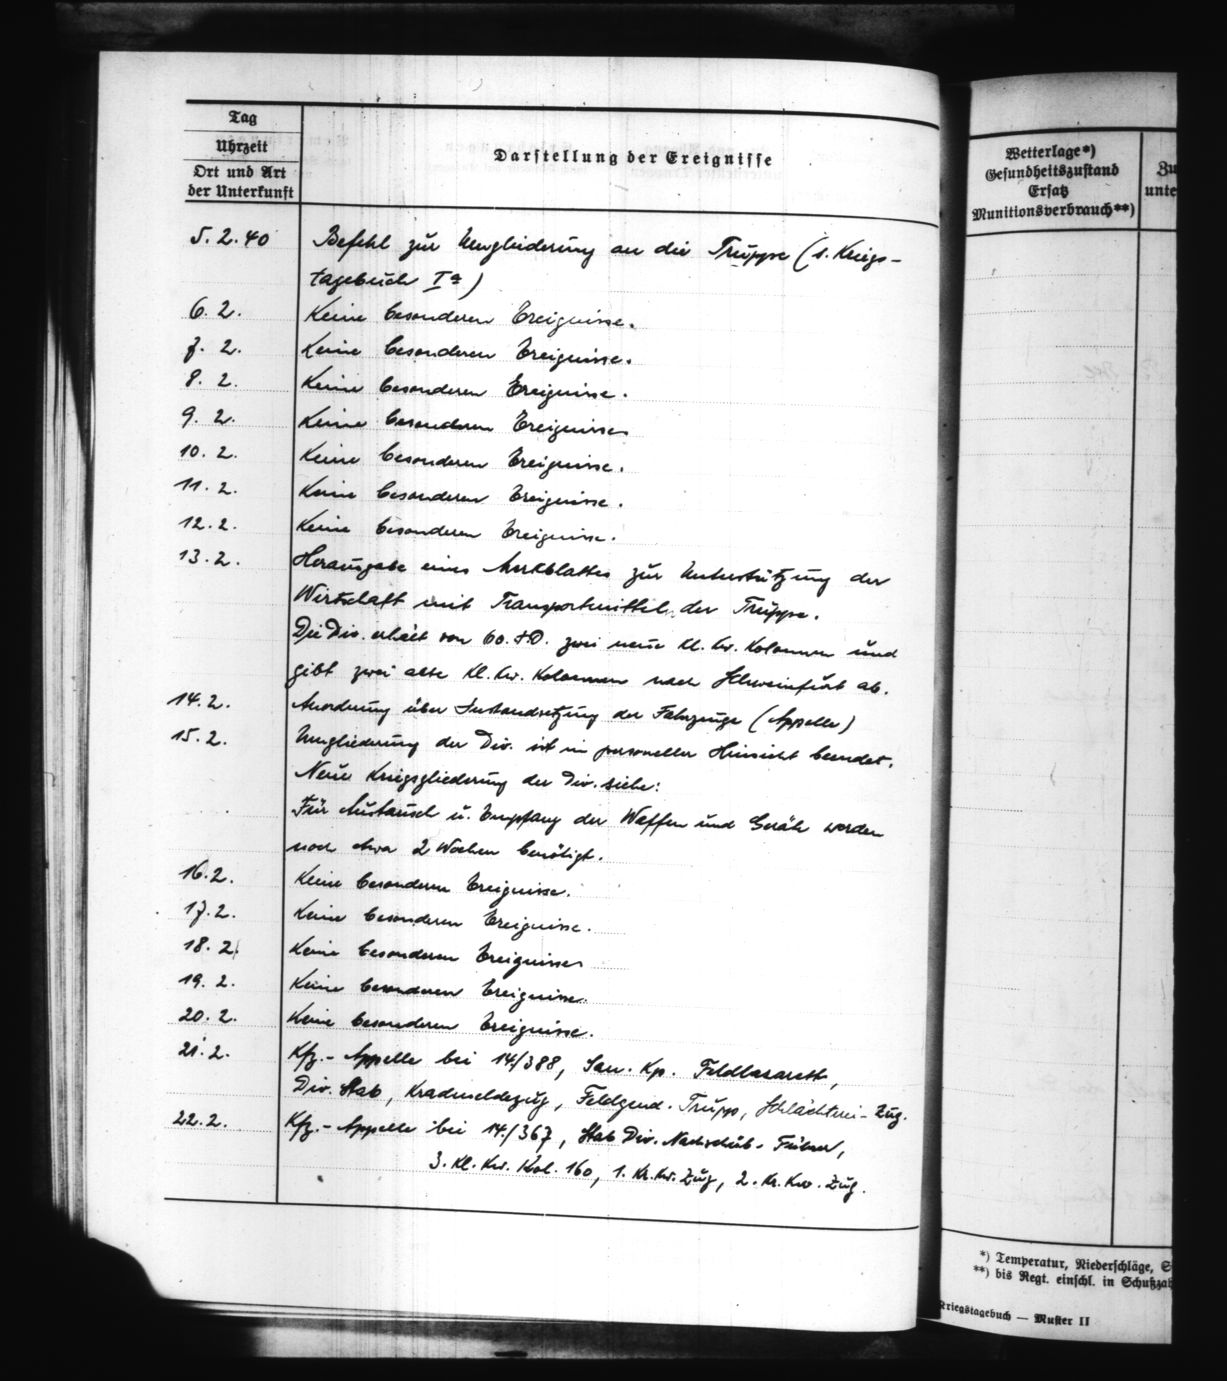 Tag
Uhrzeit
Ort und Art
der Unterkunft
Darstellung der Ereignisse
5.2.40 Befehl zur Umgliederung an die Truppe (s. Kriegs-
tagebuch Ia)
6.2. Keine besonderen Ereignisse.
7.2. Keine besonderen Ereignisse.
8.2. Keine besonderen Ereignisse.
9.2. Keine besonderen Ereignisse
10.2. Keine besonderen Ereignisse.
11.2. Keine besonderen Ereignisse.
12.2. Keine besonderen Ereignisse.
13.2. Herausgabe eines Merkblattes zur Unterstützung der
Wirtschaft mit Transportmitteln der Truppe.
Die Div. erhält von 60. I.D. zwei neue Kl. Kw. Kolonnen und
gibt zwei alte Kl. Kw. Kolonnen nach Schweinfurt ab.
14.2. Anordnung über Instandsetzung der Fahrzeuge (Appelle)
15.2. Umgliederung der Div. ist in personeller Hinsicht beendet.
Neue Kriegsgliederung der Div. siehe:
Für Austausch u. Empfang der Waffen und Geräte werden
noch etwa 2 Wochen benötigt.
16.2. Keine besonderen Ereignisse.
17.2. Keine besonderen Ereignisse.
18.2. Keine besonderen Ereignisse
19.2. Keine besonderen Ereignisse.
20.2. Keine besonderen Ereignisse.
21.2. Kfz.-Appelle bei 14./388, San. Kp. Feldlazarett,
Div. Stab, Kradmeldezug, Feldgend. Trupp, Schlächterei-Zug.
22.2. Kfz.-Appelle bei 14./367, Stab Div. Nachschub-Führer,
3. Kl. Kw. Kol. 160, 1. Kr.Kw. Zug, 2. Kr. Kw. Zug.
Wetterlage*)
Gesundheitszustand
Ersatz
Munitionsverbrauch**)
Zu
unte
*) Temperatur, Niederschläge, S
**) bis Regt. einschl. in Schußza
Kriegstagebuch — Muster II